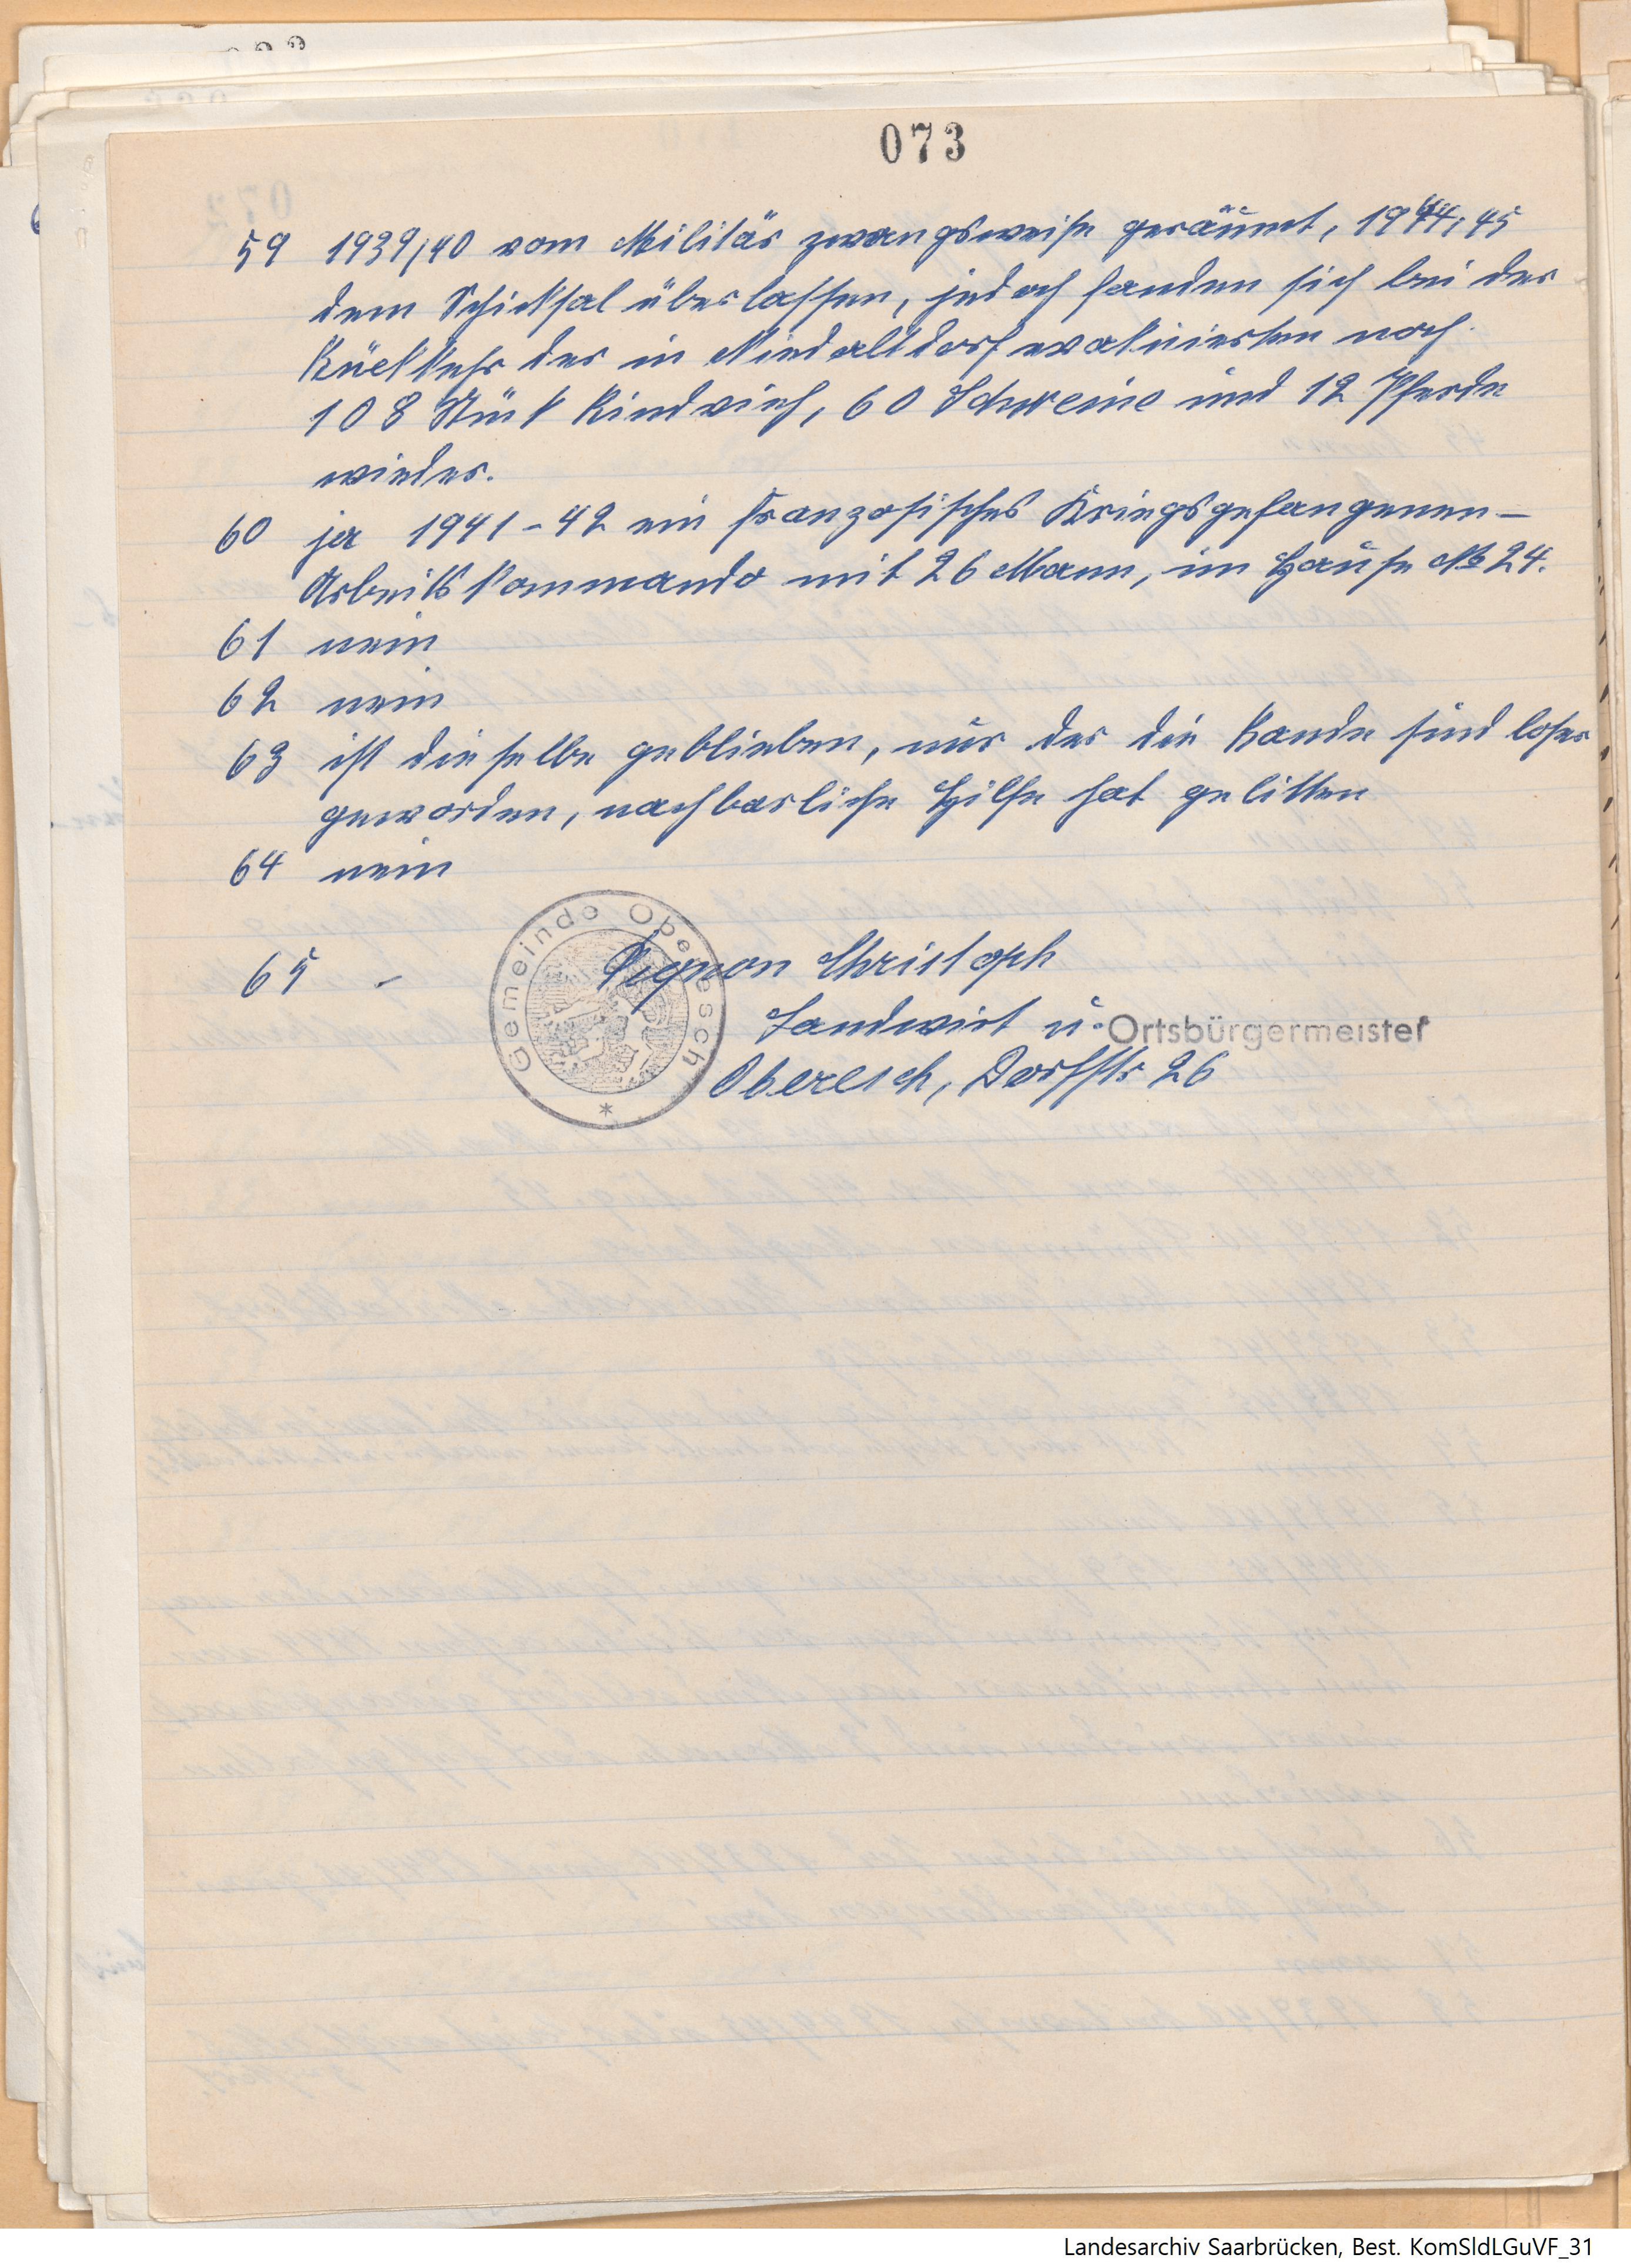 073
59 1939/40 vom Militär zwangsweise geräumt, 1944/45
dem Schicksal überlassen, jedoch fanden sich bei der
Rückkehr der in Niedaltdorf evakuierten noch
108 Stück Rindvieh, 60 Schweine und 12 Pferde
wieder.
60 ja 1941-42 ein französisches Kriegsgefangenen-
Arbeitskommando mit 26 Mann, im Hause No 24.
61 nein
62 nein
63 ist dieselbe geblieben, nur der die Bande sind loser
geworden, nachbarliche Hilfe hat gelitten
64 nein
65 -
Gemeinde Oberesch
Christoph
Landwirt u. Ortsbürgermeister
Oberesch, Dorfstr 26
Landesarchiv Saarbrücken, Best. KomSldLGuVF_31